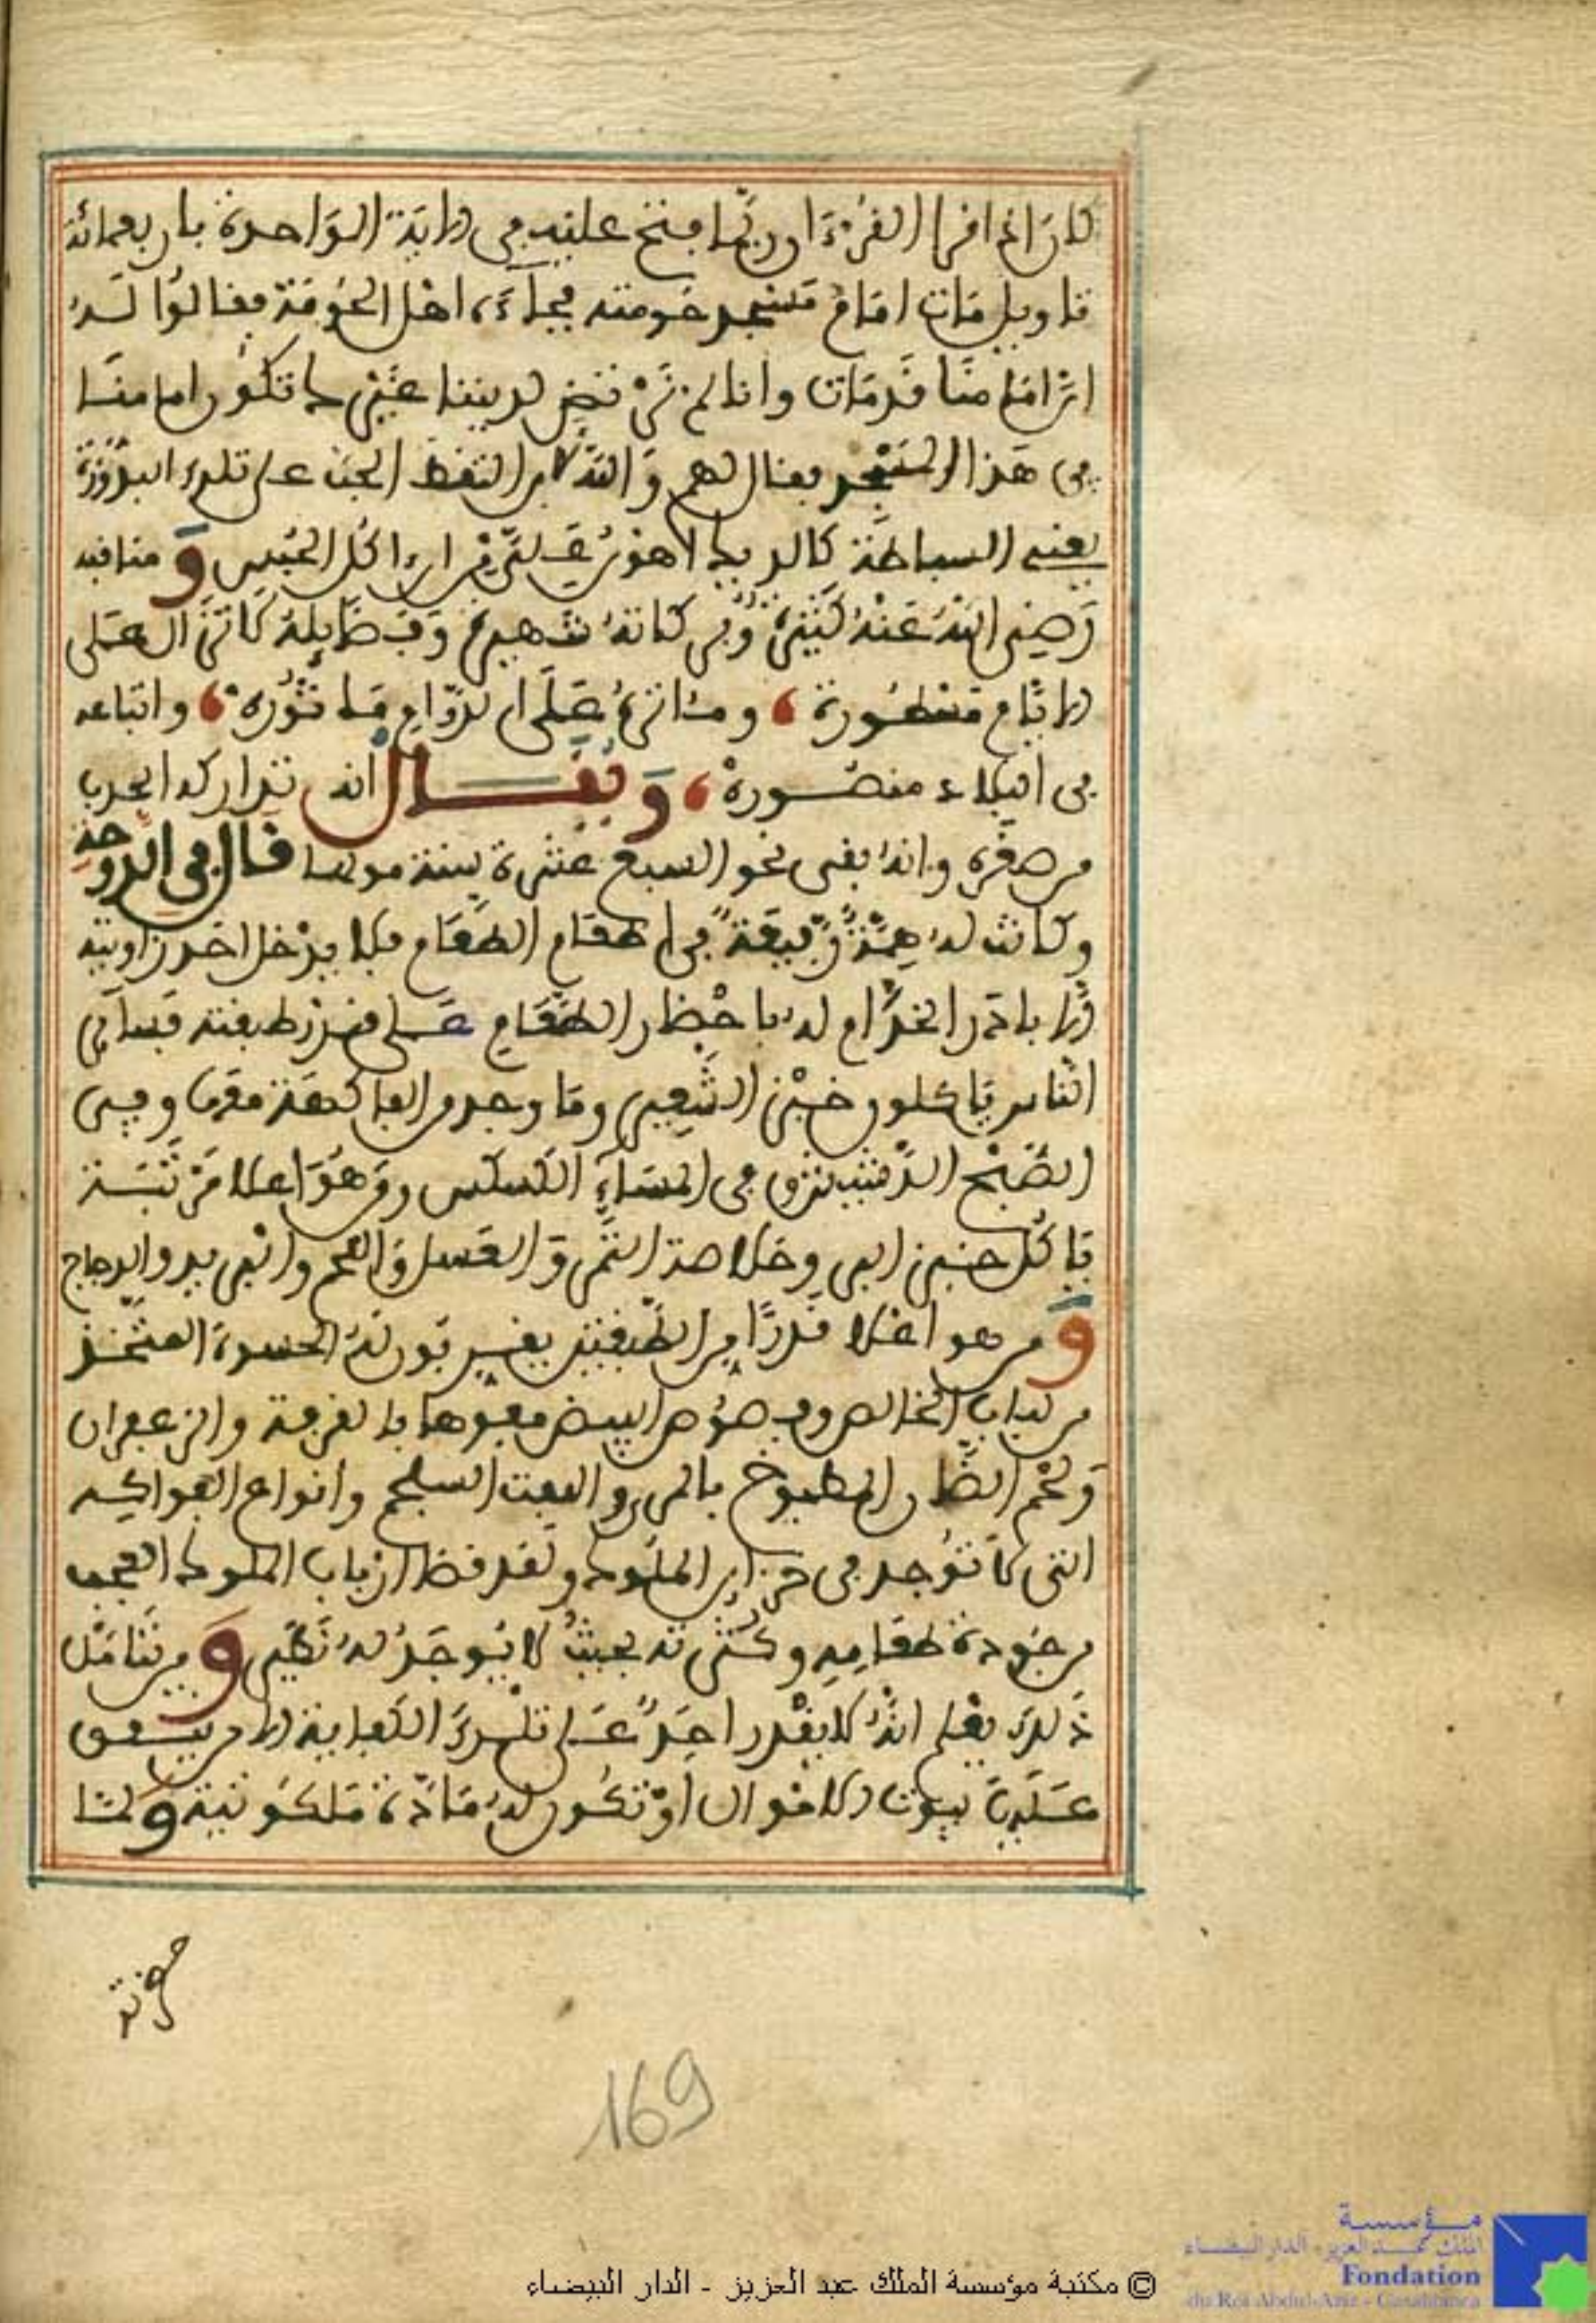 كان اذا قرا القرءان ربما فتح عليه في الاية الواحدة باربعمائة
تاويل مات امام مسجد حومته فجاءه اهل الحومة فقالوا له
ان امامنا قد مات وانا لم نر نرتضي لديننا غيرك تكون امامنا
في هذا المسجد فقال لهم والله لان التقط الحب على تلك المزورة
يعني السباطة كالديك اهون علي من ان ءاكل الحبس ومناقبه
رضي الله عنه كثيرة وبركاته شهيرة وفضايله لا تزال على
الايام مسطورة، ومئاثره على الدوام ماثورة، واتباعه
في البلاد منصورة، ويقال انه تداركه الجذب
من صغره وانه بقي نحو السبع عشرة سنة مولها قال في الدوحة
وكانت له همة رفيعة في اطعام الطعام فلا يدخل احد زاويته
الا بادر الخدام له باحضار الطعام على قدر طبقته فساير
الناس ياكلون خبز الشعير وما وجد من الفاكهة معها وفي
الصبح الدشيشة وفي المساء الكسكس ومن هو اعلا مرتبة
ياكل خبز البر وخلاصة التمر والعسل واللحم والثريد والدجاج
ومن هو اعلا قدرا من الطبقتين يفسر بورقة الحسوة المتخذ
من لباب الخالص وفصوص البيض مفوها بالقرفة والزعفران
ولحم الضان المطبوخ بالمري واللفت السلجم وانواع الفواكه
التي لا توجد في خزاين الملوك ولقد قضى ارباب الملوك العجب
من جودة طعامه وكثرته بحيث لا يوجد له نظير ومن تامل
ذلك يعلم انه لا يقدر احد على تلك الكفاية الا من ينفق
عليه بيوت الاموال او تكون له مادة ملكوتية ولما
حضرته
169
© مكتبة مؤسسة الملك عبد العزيز - الدار البيضاء
مؤسسة
الملك عبد العزيز - الدار البيضاء
Fondation
du Roi Abdul-Aziz - Casablanca